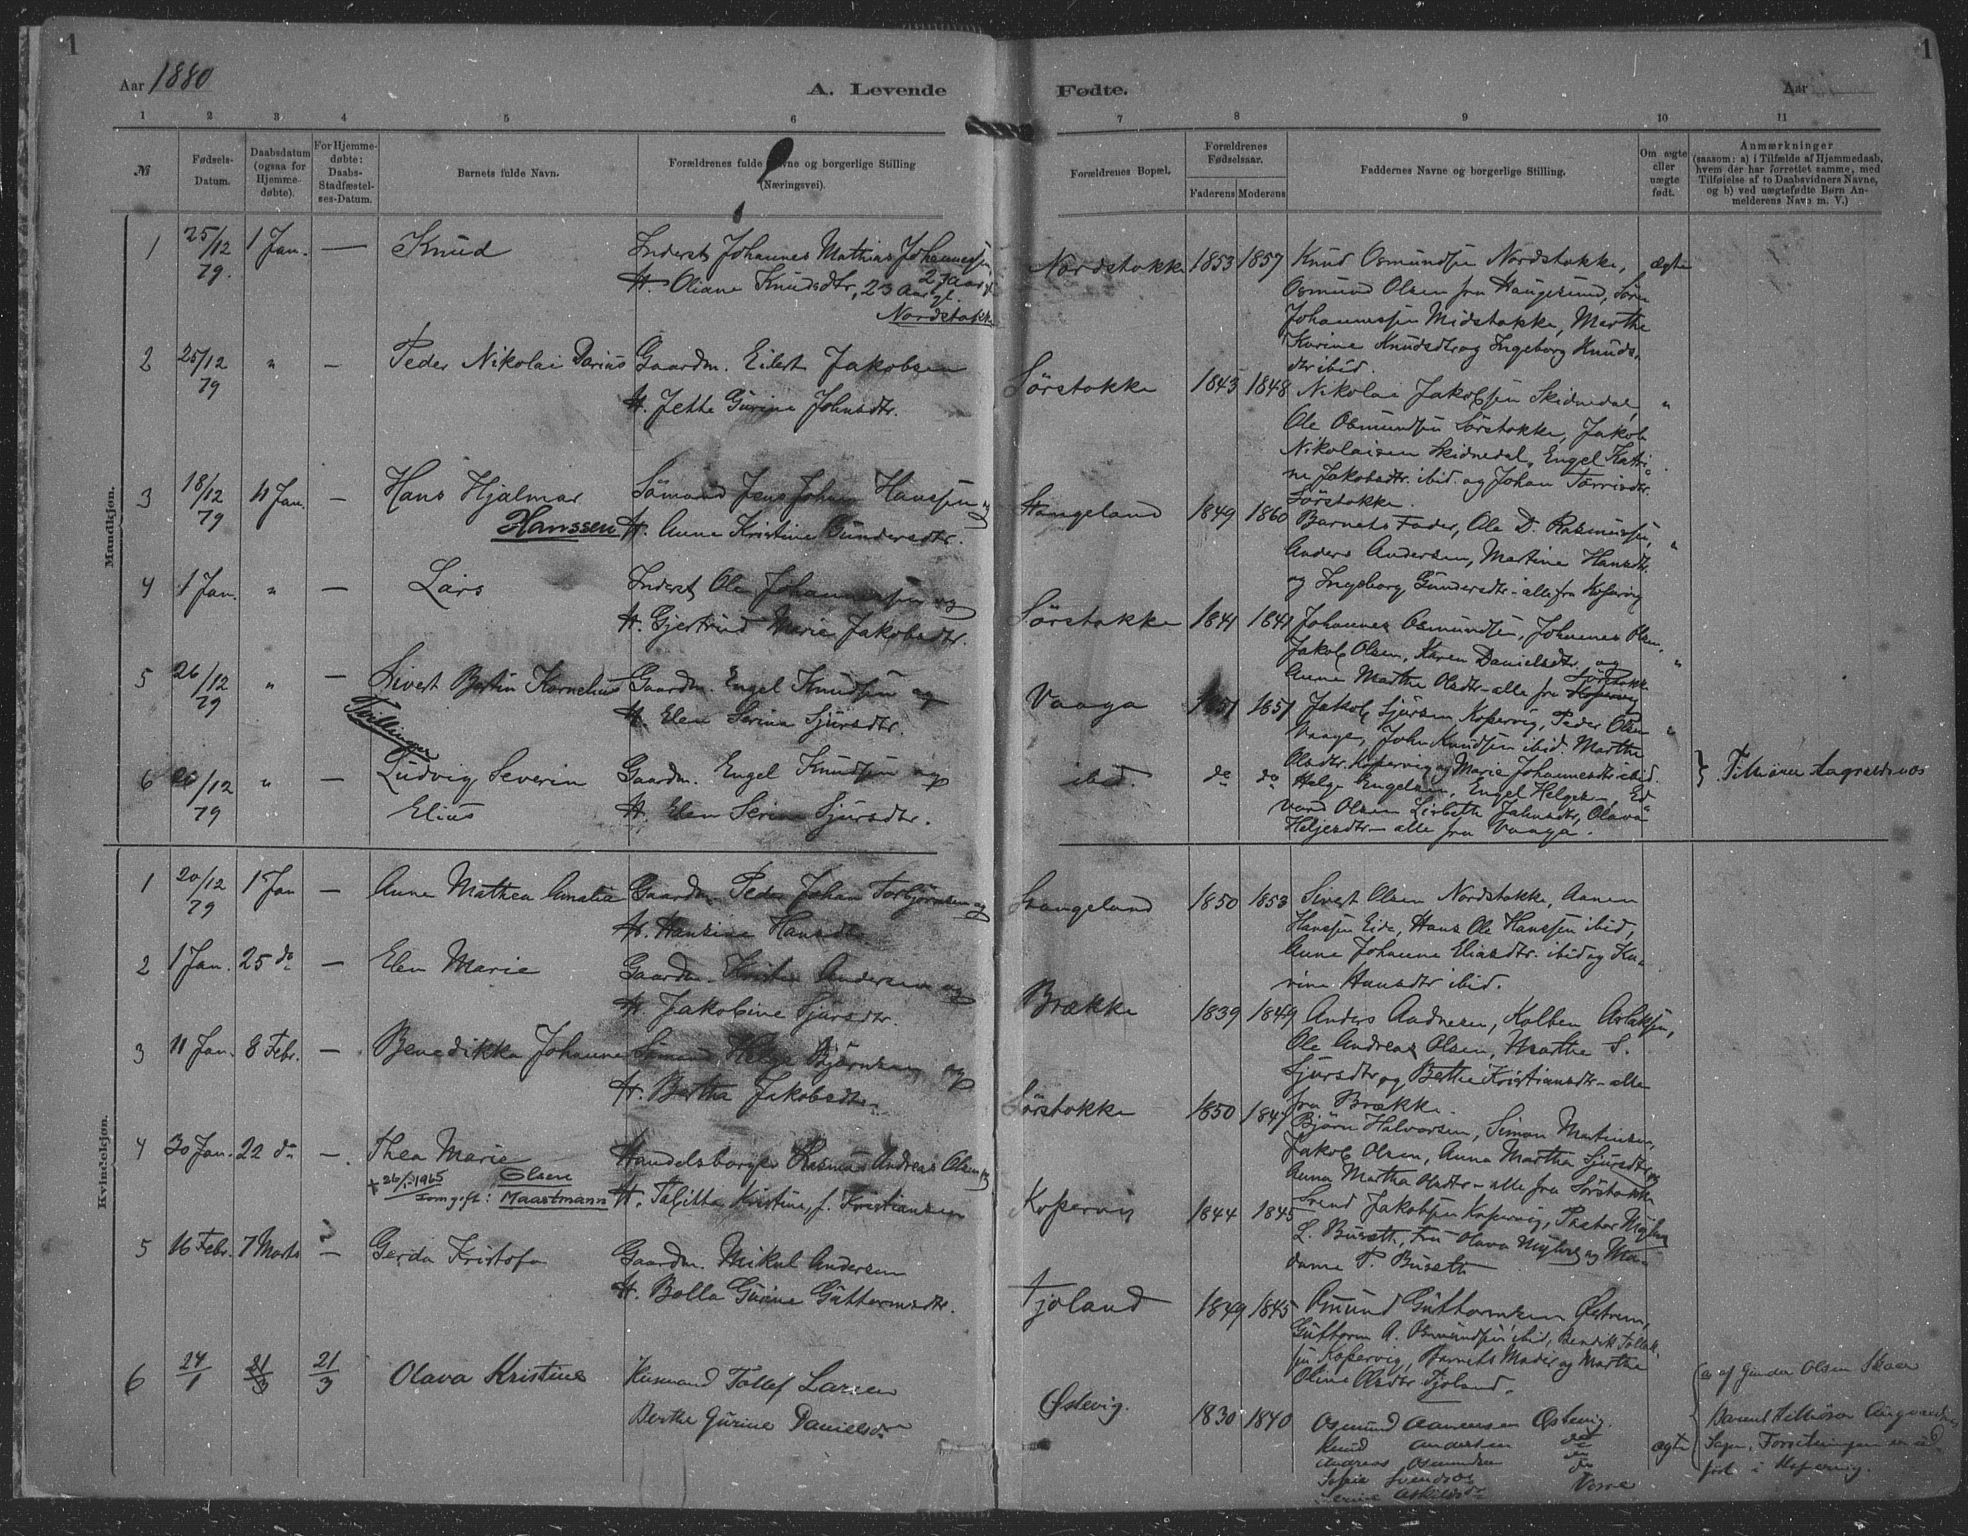 1
1
Aar 1880
A. Levende
Fødte.
Aar
1 2 3 4 5 6 7 8 9 10 11
№
Fødsels-
Datum.
Daabsdatum
(ogsaa for
Hjemme-
døbte).
For Hjemme-
døbte:
Daabs-
Stadfæstel-
ses-Datum.
Barnets fulde Navn.
Forældrenes fulde Navne og borgerlige Stilling
(Næringsvei).
Forældrenes Bopæl.
Forældrenes
Fødselsaar.
Faderens Moderens
Faddernes Navne og borgerlige Stilling.
Om ægte
eller
uægte
født.
Anmærkninger
(saasom: a) i Tilfælde af Hjemmedaab,
hvem der har forrettet samme, med
Tilføielse af to Daabsvidners Navne,
og b) ved uægtefødte Børn An-
melderens Navn m. V.)
Mandkjøn.
1 25/12 79. 1 Jan. — Knud
Inderst Johannes Mathias Johannessen
H. Oliane Knudsdtr, 23 Aar gl.
Nordstokke
Nordstokke 1853 1857
Knud Osmundsen Nordstokke, ægte
Osmund Olsen fra Haugesund, Søren
Johannessen Midstokke, Marthe
Karine Knudsdtr og Ingeborg Knuds-
dtr ibid.
2 25/12 79 " — Peder Nikolai Darius
Gaardm. Eilert Jakobsen
H. Jette Gurine Johnsdtr.
Sørstokke 1843 1848
Nikolai Jakobsen Skidnedal, "
Ole Osmundsen Sørstokke, Jakob
Nikolaisen Skidnedal, Engel Katri-
ne Jakobsdtr ibid. og Johan
Sørstokke.
3 18/12 79 11 Jan. — Hans Hjalmar
Hanssen
Sømand Jens Johan Hanssen og
H. Anne Kristine Gundersdtr.
Stangeland 1849 1860
Barnets Fader, Ole D. Rasmussen, "
Anders Andersen, Martine Hansdtr.
og Ingeborg Gundersdtr - alle fra Kopervig
4 1 Jan. " — Lars
Inderst Ole Johannessen og
H. Gjertrud Marie Jakobsdtr.
Sørstokke 1841 1841
Johannes Osmundsen, Johannes Olsen,
Jakob Olsen, Karen Danielsdtr. og "
Anne Marthe Olsdtr - alle fra Kopervig Sørstokke
5 26/12 79 " — Sivert Bertin Kornelius
Tvillinger
Gaardm. Engel Knudsen og
H. Elen Serina Sjursdtr.
Vaaga 1851 1851
Jakob Sjursen Kopervig, Peder Olsen "
Vaage, John Knudsen ibid. Marthe
Olsdtr Kopervig og Marie Johannesdtr ibid.
6 26/12 79 " — Ludvig Severin
Elius
Gaardm. Engel Knudsen og
H. Elen Serine Sjursdtr.
ibid. do do
Helge Engelsen, Engel Helgesen, Ed-
vard Olsen Lisbeth Johnsdtr, Olava
Heljesdtr - alle fra Vaaga.
Kvindekjøn.
1 20/12 79 1 Jan — Anne Mathea Amalia
Gaardm. Peder Johan Torbjørnsen og
H. Hansine Hansdtr
Stangeland 1850 1853
Sivert Olsen Nordstokke, Aanen
Hanssen Eide, Hans Ole Hanssen ibid,
Anne Johanne Eliasdtr. ibid og Ka-
rine Hansdtr ibid.
2 1 Jan. 25 do — Elen Marie
Gaardm. Kristen Andersen og
H. Jakobine Sjursdtr.
Brække 1839 1849
Anders Aadnesen, Kolben Aslaksen,
Ole Andreas Olsen, Marthe S.
Sjursdtr og Berthe Kristiansdtr - alle
fra Brække.
3 11 Jan. 8 Febr. — Benedikka Johanne
Sømand Helge Bjørnsen og
H. Bertha Jakobsdtr.
Sørstokke 1850 1847
Bjørn Halvorsen, Simon Martinsen,
Jakob Olsen, Anna Martha Sjursdtr og
Anna Martha Olsdtr - alle fra Sørstokke
4 30 Jan. 22 do — Thea Marie
Olsen
+ 26/1-1965
som gift: Maastmann
Handelsborger Rasmus Andreas Olsen og
H. Talitta Kristine, f. Kristiansen
Kopervig 1844 1845
Svend Jakobsen Kopervig, Pastor
L. Buseth, Fru Olava og Ma-
dame P. Buseth
5 16 Febr. 7 Marts — Gerda Kristofa
Gaardm. Mikal Andersen
H. Bolla Gurine Guttormsdtr.
Tjoland 1849 1845
Osmund Guttormsen Østrem,
Guttorm A. Osmundsen ibid, Bendik Tollak-
sen Kopervig, Barnets Moder og Marthe
Oline Olsdtr. Tjoland.
6 24/1 21/3 21/3 Olava Kristine
Husmand Tollef Larsen
Berthe Gurine Danielsdr
Østevig. 1830 1840
Osmund Aanensen Østevig. ægte
Knud Andersen do
Andreas Osmundsen do
Sofie Svendsdr do
Serine Vorre
a) af Gunder Olsen
i Kopervig.